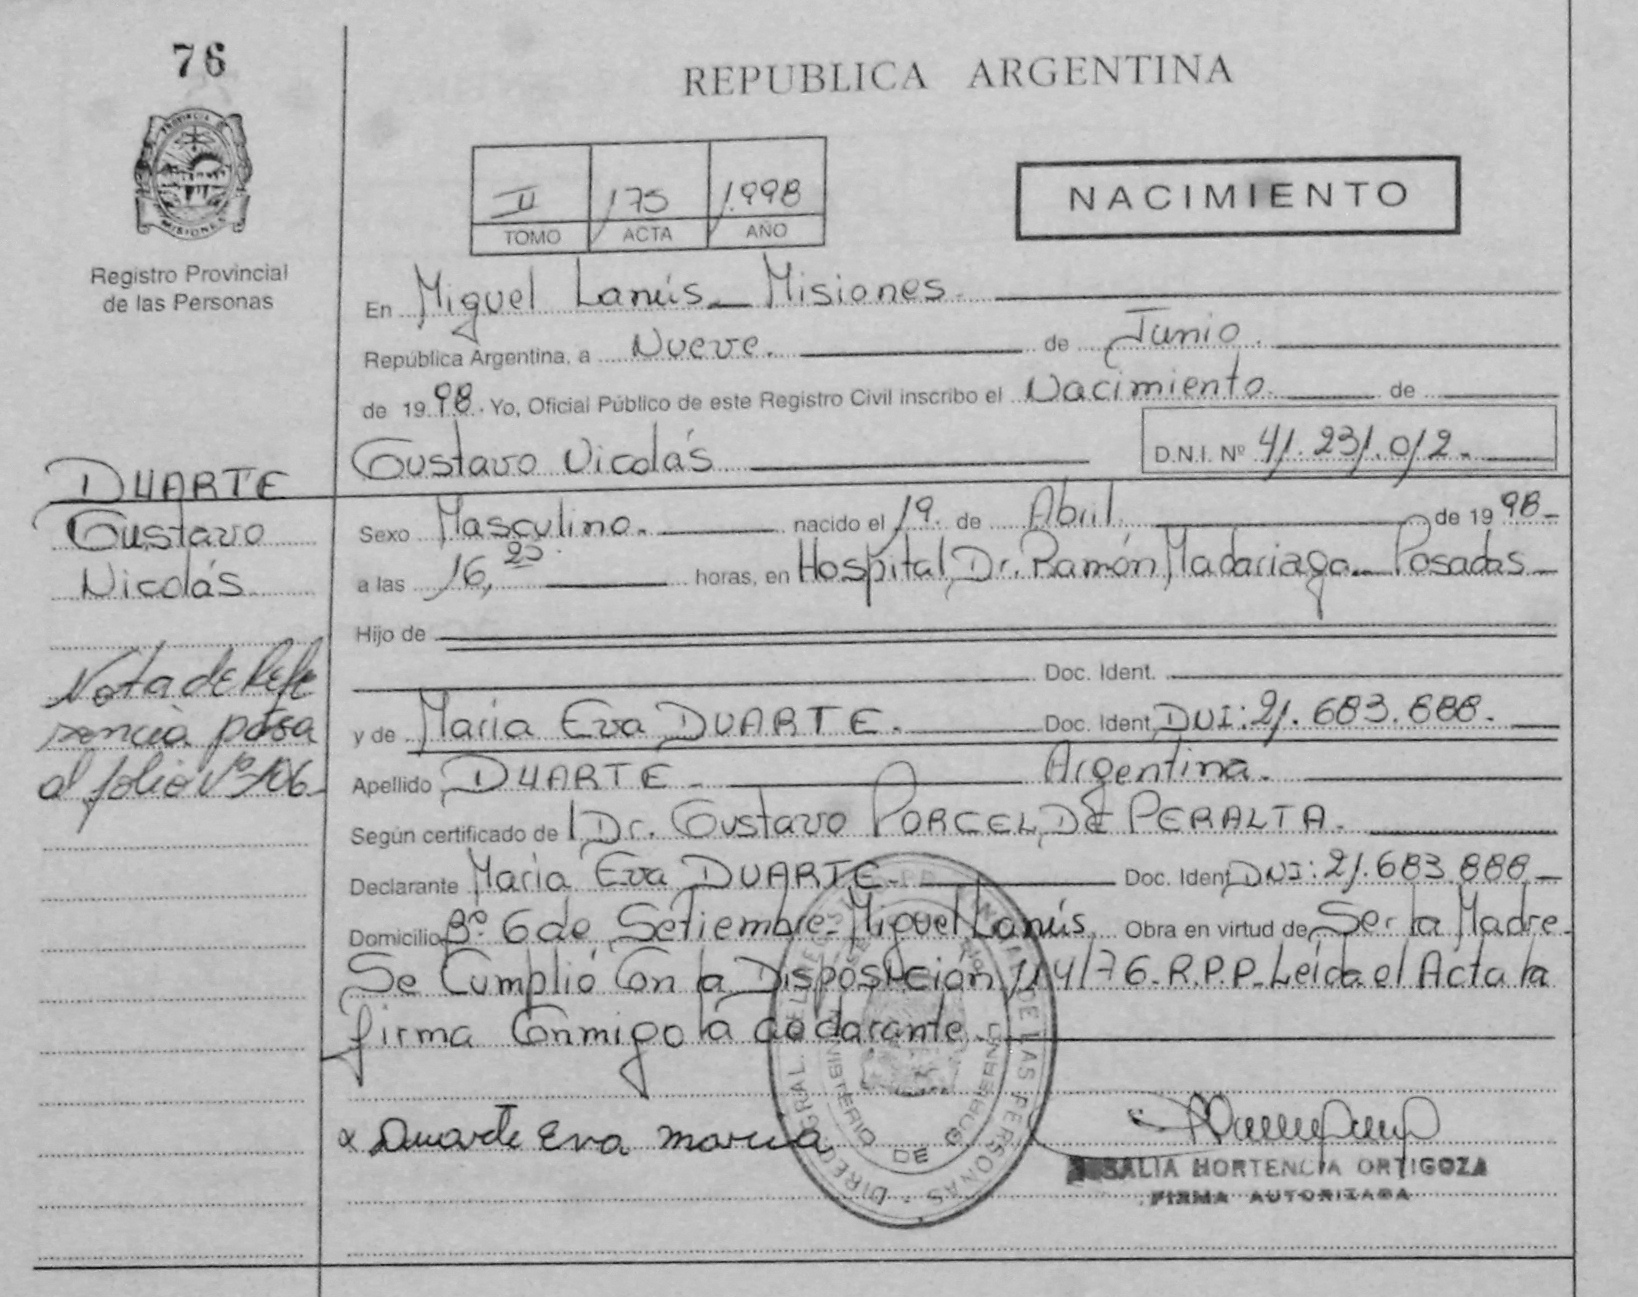 76
REPUBLICA ARGENTINA
PROVINCIA
MISIONES
Registro Provincial
de las Personas
II 175 1.998
TOMO ACTA AÑO
NACIMIENTO
En Miguel Lanús - Misiones.
República Argentina, a Nueve. de Junio.
de 19 98. Yo, Oficial Público de este Registro Civil inscribo el Nacimiento de
Gustavo Nicolás D.N.I. Nº 41.231.012.
DUARTE
Gustavo
Nicolás
Sexo Masculino. nacido el 19. de Abril. de 19 98-
a las 16, horas, en Hospital Dr. Ramón Madariaga - Posadas-
Hijo de
Doc. Ident.
Nota de Refe
rencia pasa
al folio Nº 106.
y de Maria Eva DUARTE. Doc. Ident. DNI: 21.683.888.
Apellido DUARTE - Argentina.
Según certificado de Dr. Gustavo PORCEL DE PERALTA.
Declarante Maria Eva DUARTE- Doc. Ident. DNI: 21.683.888-
Domicilio Bº 6 de Setiembre- Miguel Lanús. Obra en virtud de Ser la Madre.
Se Cumplió Con la Disposición 114/76-R.P.P- Leída el Acta la
firma Conmigo la declarante.
x Duarte Eva maria
MINISTERIO DE GOBIERNO
DE LAS PERSONAS
ALIA HORTENCIA ORTIGOZA
FIRMA AUTORIZADA